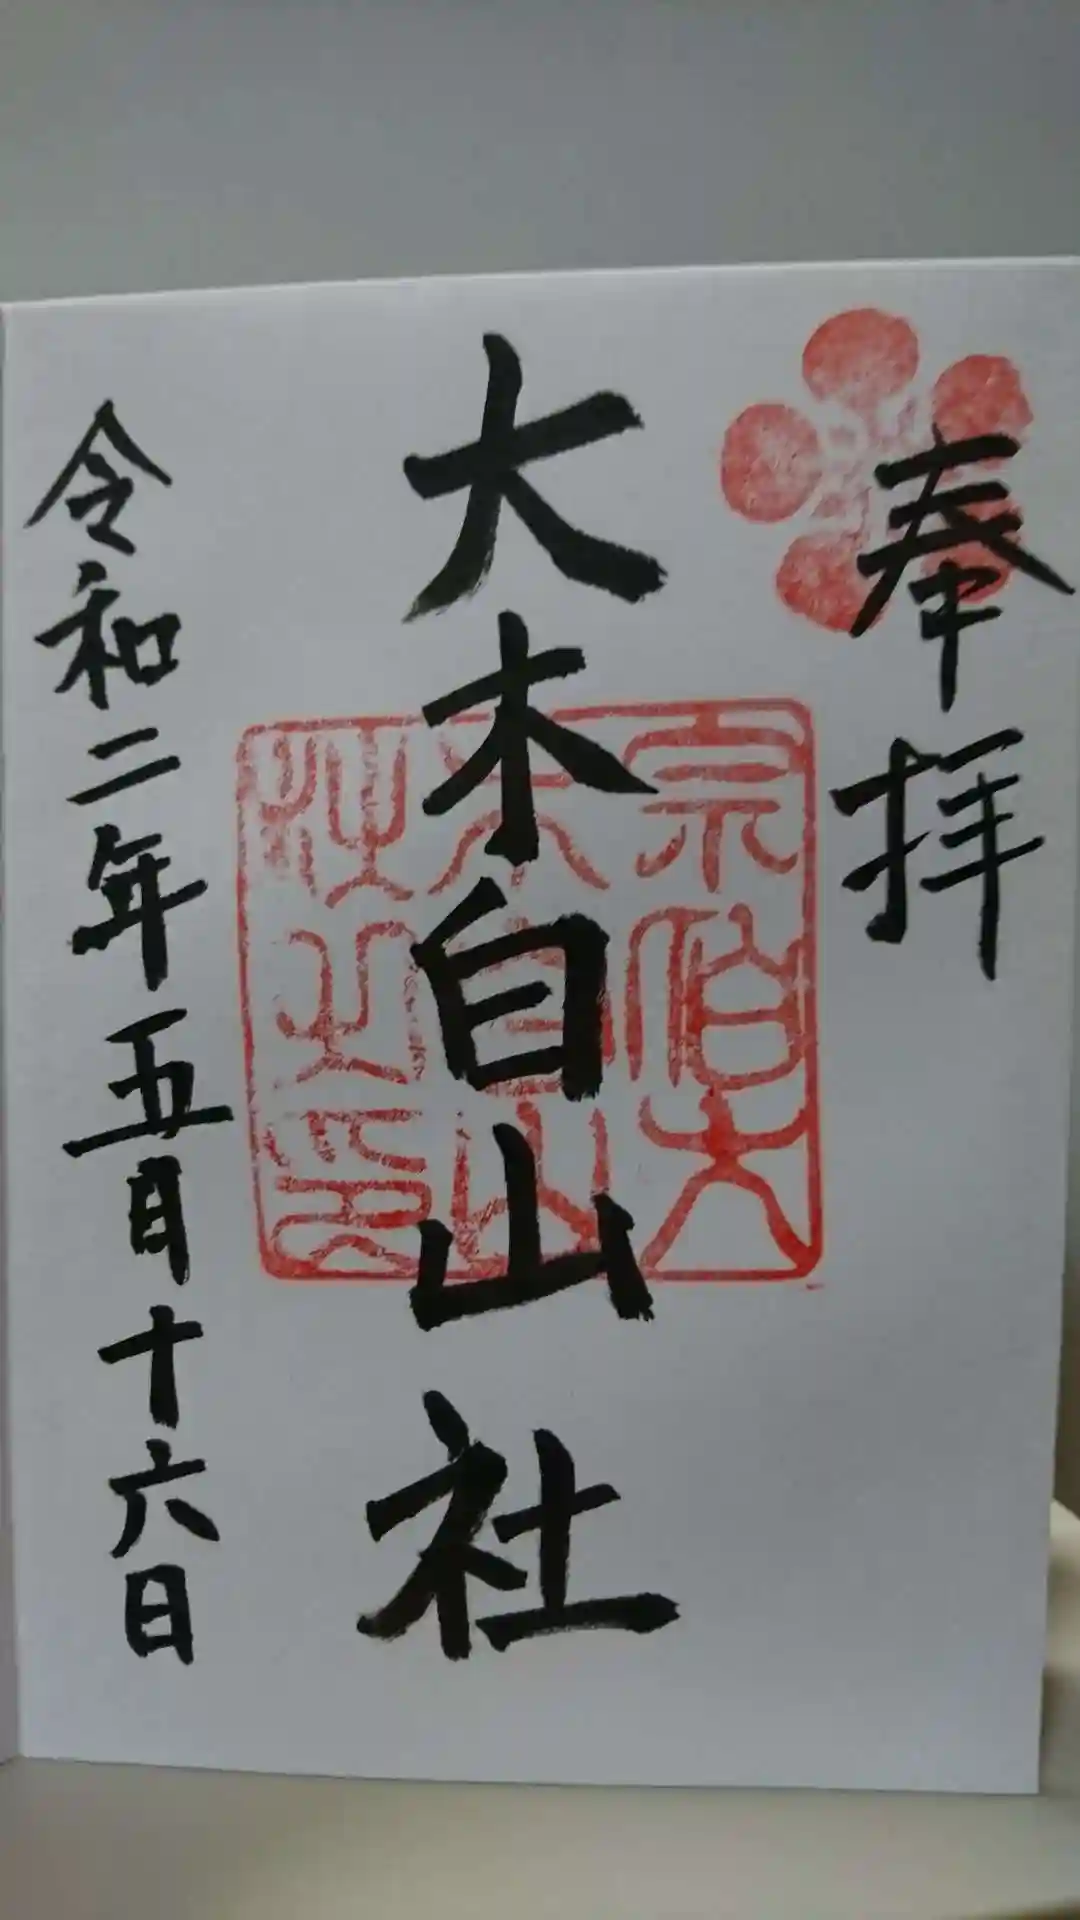 奉拝
大木白山社
宗伯大
木白山
社之印
令和二年五月十六日